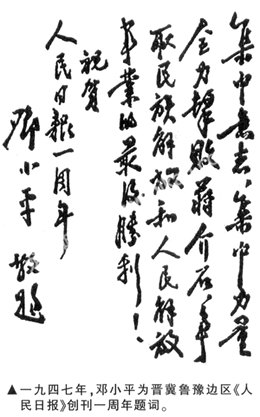 集中意志、集中力量
全力擊敗蔣介石、争
取民族解放和人民解放
事業的最後勝利！
祝賀
人民日報一周年
鄧小平 敬題
▲一九四七年，邓小平为晋冀鲁豫边区《人
民日报》创刊一周年题词。